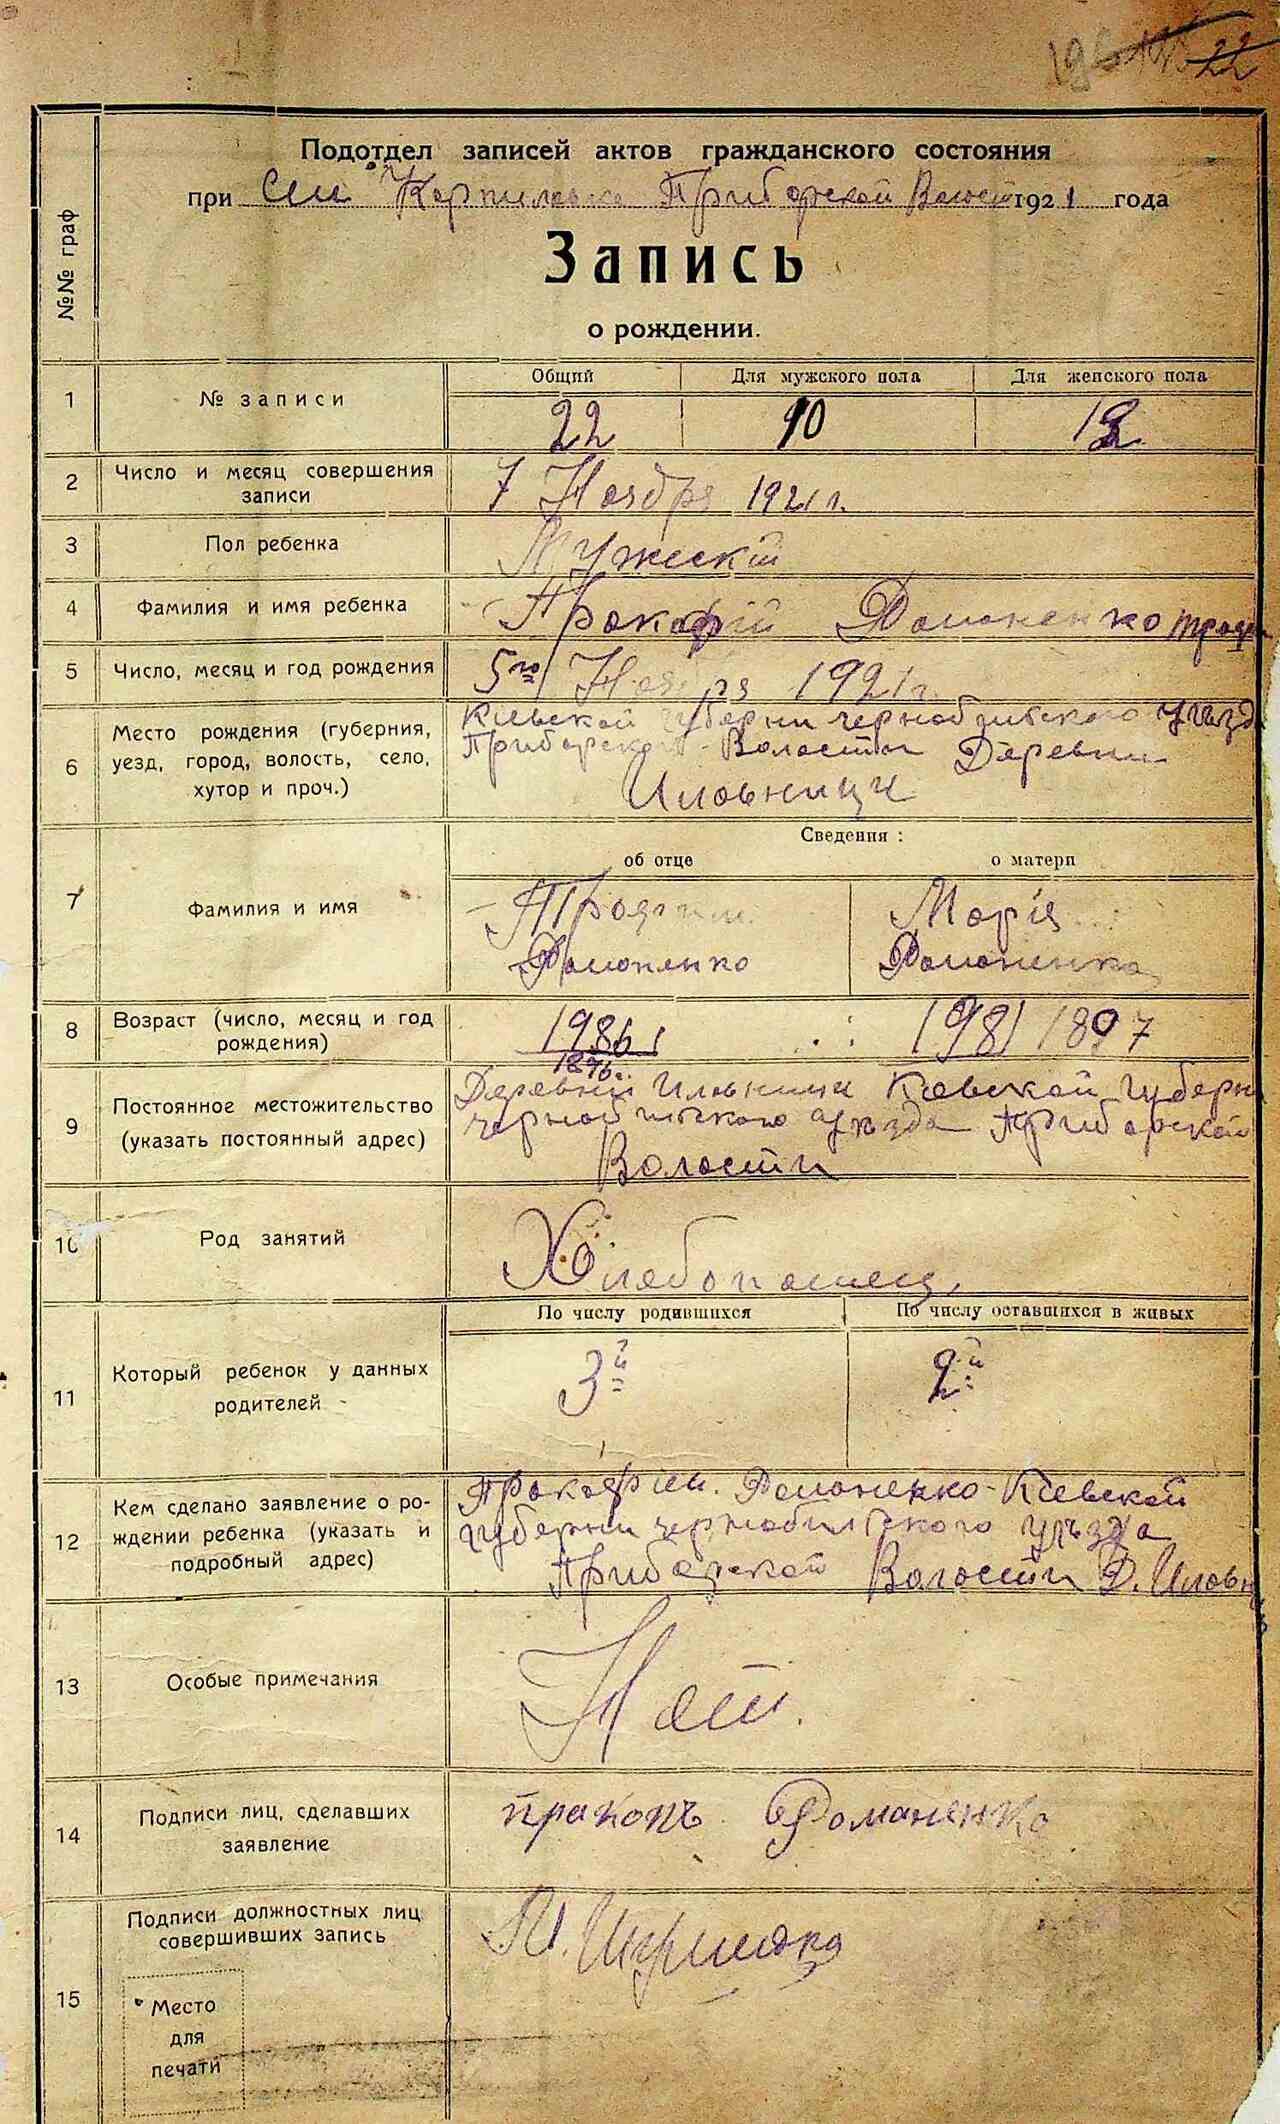 22
Подотдел записей актов гражданского состояния
при Карпиловка Приборской Волости 1921 года
№№ граф
Запись
о рождении.
1 № записи
Общий Для мужского пола Для женского пола
22 10 12
2 Число и месяц совершения записи
7 Ноября 1921 г.
3 Пол ребенка
Мужескій
4 Фамилия и имя ребенка
Прокофій Домоненко
5 Число, месяц и год рождения
5го Ноября 1921 г.
6 Место рождения (губерния,
уезд, город, волость, село,
хутор и проч.)
Кіевской губерни чернобильского
Приборской Волости Деревни
Иловници
Сведения :
об отце о матери
7 Фамилия и имя
Марія
Домоненко Домоненко
8 Возраст (число, месяц и год
рождения)
1897
1896
9 Постоянное местожительство
(указать постоянный адрес)
Деревни Иловници Киевской губерни
чернобильского уезда Приборской
Волости
10 Род занятий
Хлебопашец
11 Который ребенок у данных
родителей
По числу родившихся По числу оставшихся в живых
3й 2й
12 Кем сделано заявление о ро-
ждении ребенка (указать и
подробный адрес)
Прокофіем Домоненко Кіевской
губерни чернобильского уезда
Приборской Волости Д. Иловн
13 Особые примечания
Нет.
14 Подписи лиц, сделавших
заявление
пракопъ Доманенко
15 Подписи должностных лиц
совершивших запись
Место
для
печати